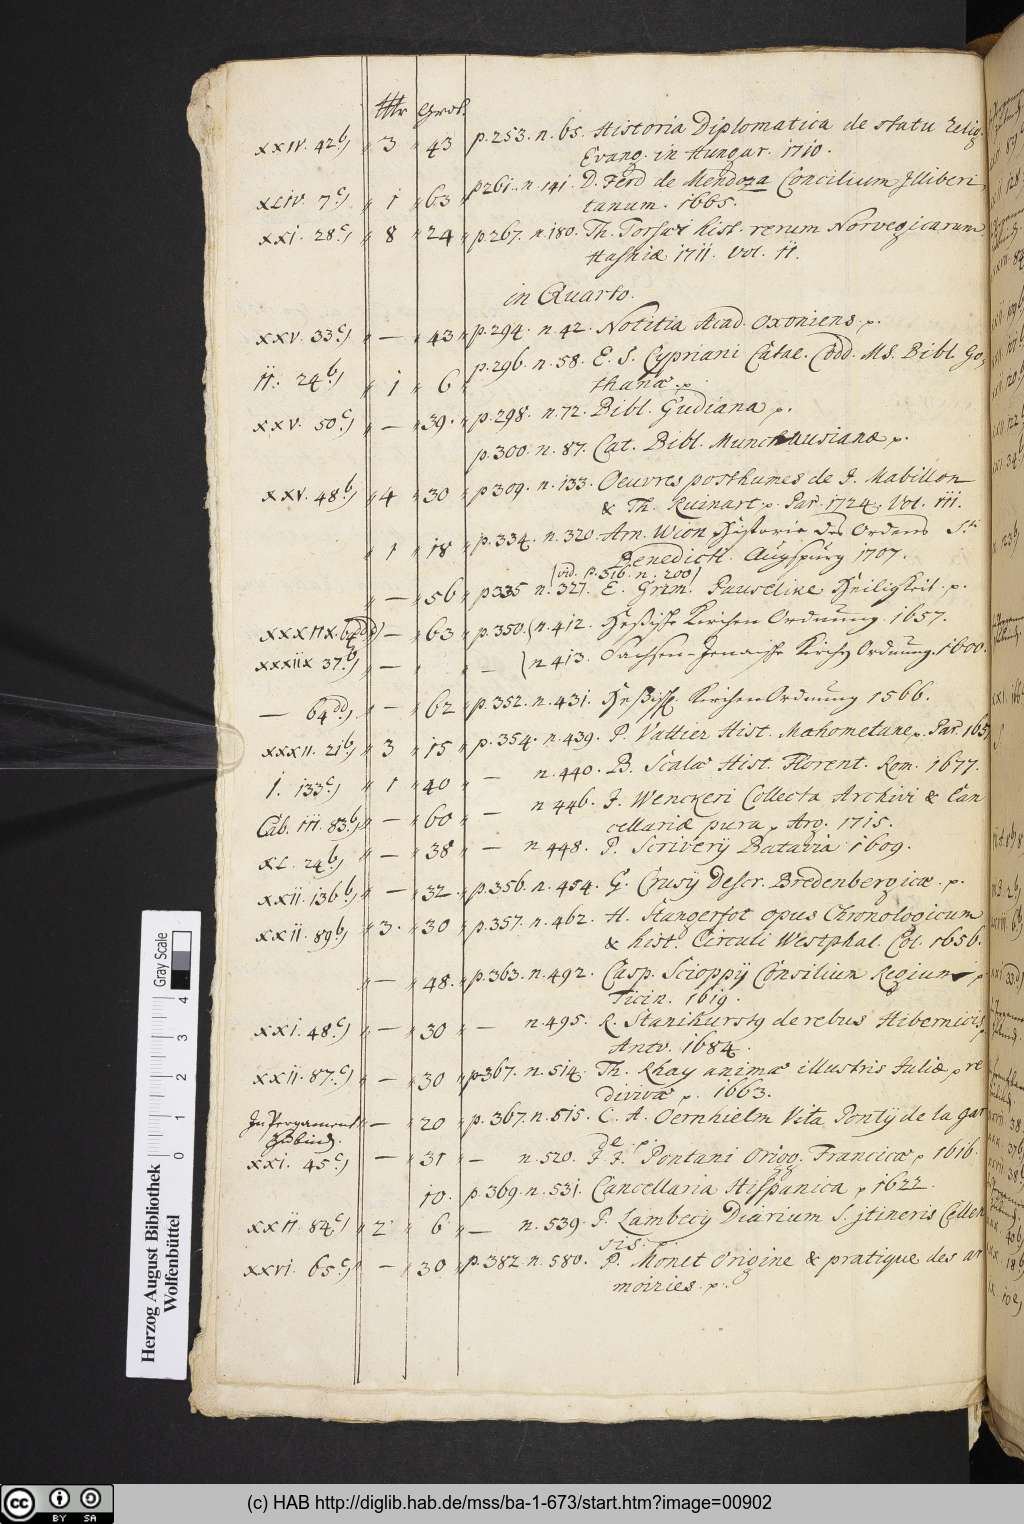 Thlr Grosch.
XXIV. 42b) 3 43 p. 253. n. 65. Historia Diplomatica de statu relig.
Evang. in Hungar. 1710.
XLIV. 7c) 1 63 p. 261. n. 141. D. Ferd de Mendoza Concilium Illiberi,
tanum. 1665.
XXI. 28c) 8 24 p. 267. n. 180. Th. Torfaei hist. rerum Norvegicarum
Hafniæ 1711. Vol. II.
in Quarto.
XXV. 33c) — 43 p. 294. n. 42. Notitia Acad. Oxoniens. p.
II. 24b) 1 6 p. 296. n. 58. E. S. Cypriani Catal. Codd. MS. Bibl. Go,
thanæ. p.
XXV. 50c) — 39. p. 298. n. 72. Bibl. Gudiana p.
p. 300. n. 87. Cat. Bibl. Munchausianæ p.
XXV. 48b) 4 30 p. 309. n. 133. Oeuvres posthumes de J. Mabillon
& Th. Ruinart. p. Par. 1724. Vol. III.
1 18 p. 334. n. 320. Arn. Wion Historie des Ordens Sti
Benedicti. Augspurg 1707.
(vid. p. 316. n. 200)
— 56 p. 335 n. 327. E. Grim. Pausciliae Heiligkeit. p.
— 63 p. 350. (n. 412. Heßische Kirchen Ordnung. 1657.
XXXIIX 37.b) — — (n. 413. Sachsen-Jenaische Kirchen Ordnung. 1600.
— 64dd) — 62 p. 352. n. 431. Heßische Kirchen Ordnung 1566.
XXXII. 21b) 3 15 p. 354. n. 439. P. Vattier Hist. Mahometane p. Par. 165
I. 133c) 1 40 — n. 440. B. Scalæ Hist. Florent. Rom. 1677.
Cab. III. 83b) — 60 — n. 446. J. Wenckeri Collecta Archivi & Can
cellariæ jura p. Arg. 1715.
XL. 24b) — 38 — n. 448. P. Scriverij Batavia 1609.
XXII. 136b) — 32 p. 356. n. 454. G. Crusij Descr. Bredenbergicæ. p.
XXII. 89b) 3. 30 p. 357. n. 462. H. Stangefot opus Chronologicum
& hist. Circuli Westphal. Col. 1656.
— 48. p. 363. n. 492. Casp. Scioppij Consilium Regium p
Ticin. 1619.
XXI. 48c) — 30 — n. 495. R. Stanihursty de rebus Hibernicis
Antv. 1684.
XXII. 87c) — 30 p. 367. n. 514. Th. Rhay animæ illustris Juliæ p re
divivæ p. 1663.
In Pergament — 20 p. 367. n. 515. C. A. Oernhielm Vita Pontij de la Gar
gebund. die p.
XXI. 45c) — 31 — n. 520. J. J. Pontani Origg. Francicæ p 1616.
10. p. 369. n. 531. Cancellaria Hispanica p 1622.
XXII. 84c) 2 6 — n. 539. P. Lambecij Diarium S. Jtineris Cellen
sis.
XXVI. 65c) — 30 p. 382. n. 580. P. Monet Origine & pratique des ar
moiries. p.
Herzog August Bibliothek
Wolfenbüttel
Gray Scale
0 1 2 3 4
cc BY SA
(c) HAB http://diglib.hab.de/mss/ba-1-673/start.htm?image=00902